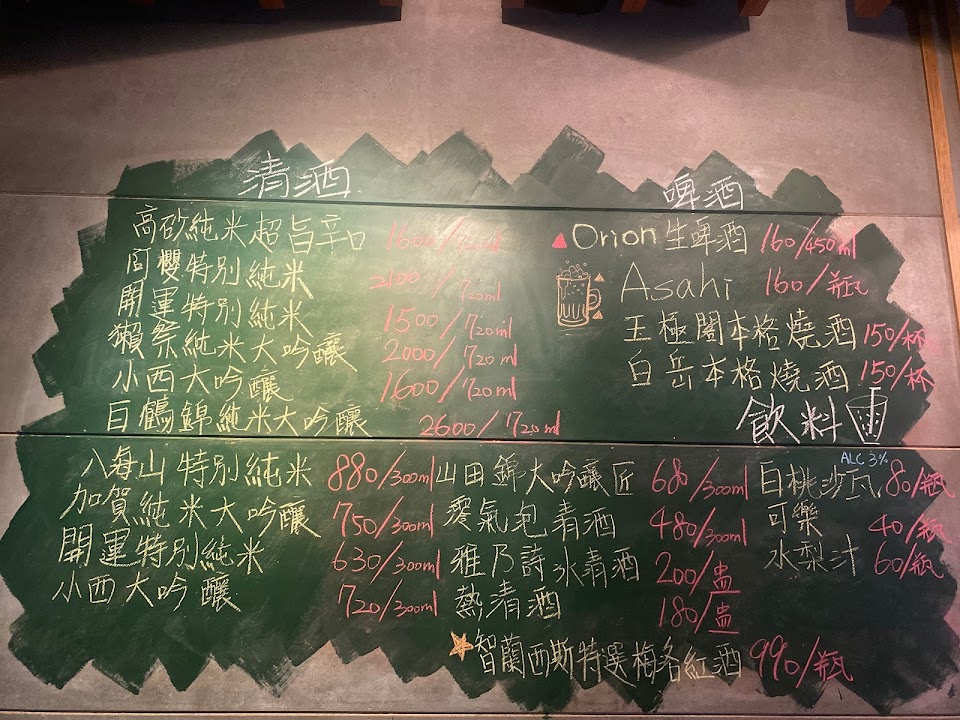 清酒
高砂純米超旨辛口 1600/720ml
阿櫻特別純米 2100/720ml
開運特別純米 1500/720ml
獺祭純米大吟釀 2000/720ml
小西大吟釀 1600/720ml
白鶴錦純米大吟釀 2600/720ml
八海山特別純米 880/300ml
加賀純米大吟釀 750/300ml
開運特別純米 630/300ml
小西大吟釀 720/300ml
山田錦大吟釀匠 680/300ml
雯氣泡清酒 480/300ml
雅乃詩冰清酒 200/盅
熱清酒 180/盅
智蘭西斯特選梅洛紅酒 990/瓶
啤酒
Orion生啤酒 160/450ml
Asahi 160/瓶
玉極閣本格燒酒 150/杯
白岳本格燒酒 150/杯
飲料
ALC 3%
白桃沙瓦 80/瓶
可樂 40/瓶
水梨汁 60/瓶